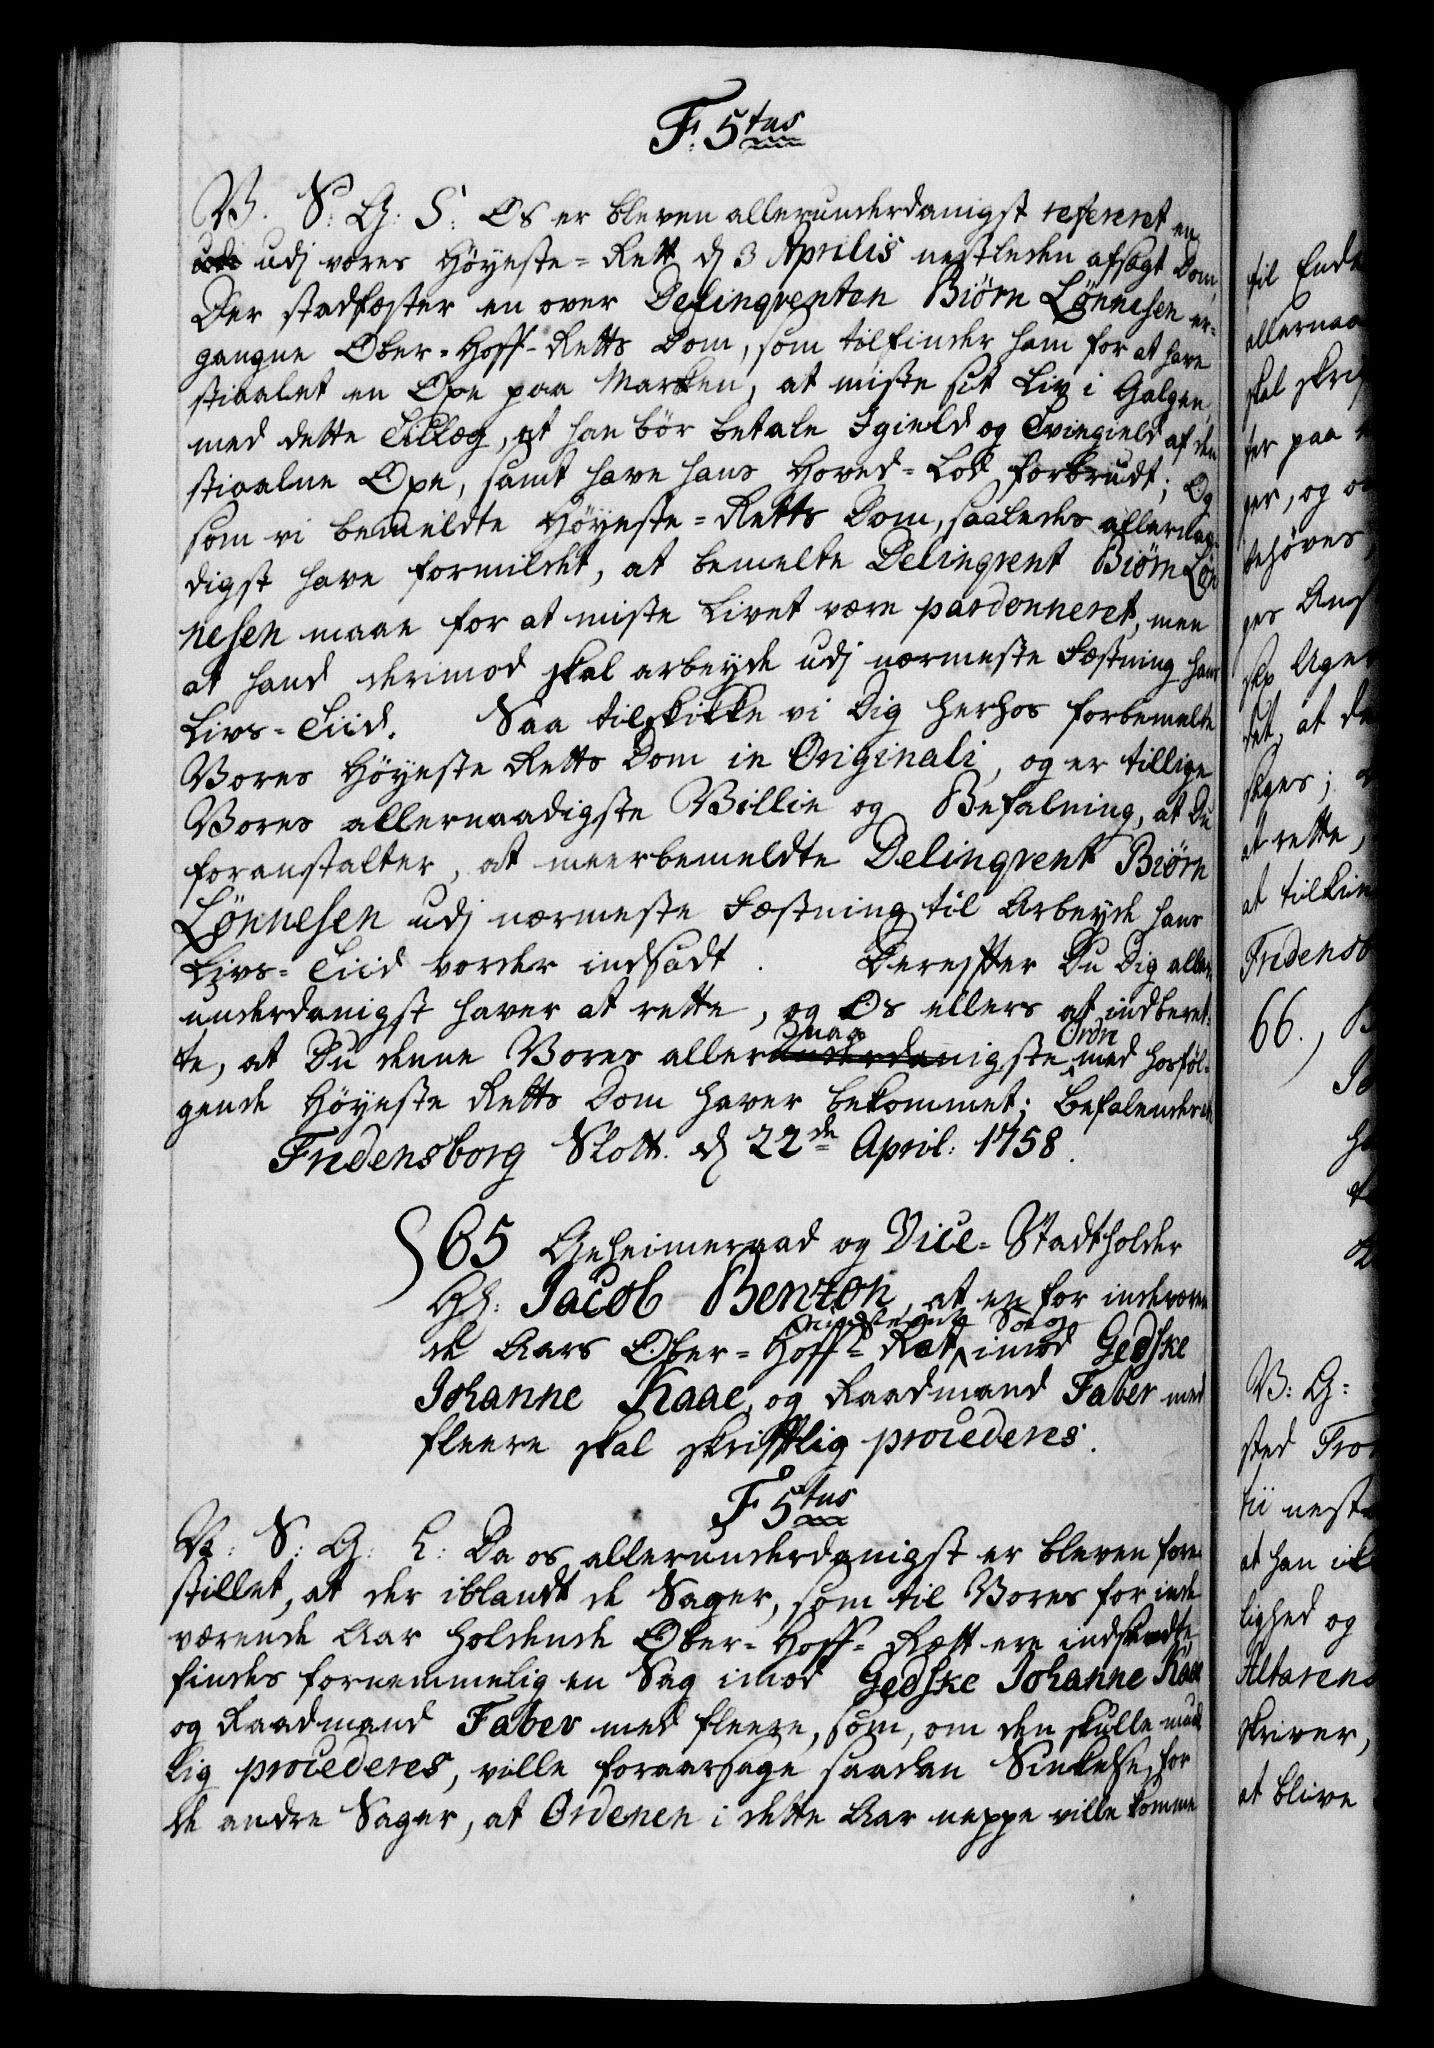 F. 5tus
V. S: G: S: Os er bleven allerunderdanigst refereret en
udj vores Høyeste-Rett d 3 Aprilis nestleden afsagt Dom,
Der stadfæster en over Delinqventen Biørn Lønnesen er-
gangne Ober-Hoff-Retts Dom, som tilfinder ham for at have
stiaalet en Oxe paa Marken, at miste sit Liv i Galgen
med dette Tillæg, at han bør betale Igield og Tvingield af den
stiaalne Oxe, samt have hans Hoved-Lod forbrudt; Og
som vi bemeldte Høyeste-Retts Dom, saaledes allernaa-
digst have formildet, at bemelte Delinqvent Biørn Løn
nesen maae for at miste Livet være pardonneret, men
at hand derimod skal arbeyde udj nærmeste Fæstning hans
Livs-Tiid. Saa tilskikke vi Dig herhos forbemelte
Vores Høyeste Retts Dom in Originali, og er tillige
Vores allernaadigste Villie og Befalning, at Du
foranstalter, at meerbemeldte Delinqvent Biørn
Lønnesen udj nærmeste Fæstning til Arbeyde hans
Livs-Tiid vorder indsadt. Derefter Du Dig aller
underdanigst haver at rette, og Os ellers at indberet-
te, at Du denne Vores allernaadigste Ordre med hosføl-
gende Høyeste Retts Dom haver bekommet; Befalendes
Fridensborg Slott. d 22de April: 1758.
65 Geheimeraad og Vice-Stadtholder
Hr: Jacob Benzon, at en for indeværen
de Aars Ober-Hoff-Ret indstevnt Sag imod Gedske
Johanne Kaae, og Raadmand Faber med
fleere skal skrifftlig procederes.
F 5tus
V: S: G: L: Da os allerunderdanigst er bleven fore-
stillet, at der iblandt de Sager, som til Vores for inde
værende Aar holdende Ober-Hoff-Rett ere indstevnte,
findes fornemmelig en Sag imod Gedske Johanne Kaae
og Raadmand Faber med fleere, som, om den skulle mundt
lig procederes, ville foraarsage saadan Sinkelse for
de andre Sager, at Ordenen i dette Aar neppe ville komme
til Ende
allernaa
skal skrif
ter paa
ger, og
behøves
ges
det, at
at rette,
Fridensb
66.,
V: G:
sted
nest
at han
lighed og
Altarens
skriver,
at blive